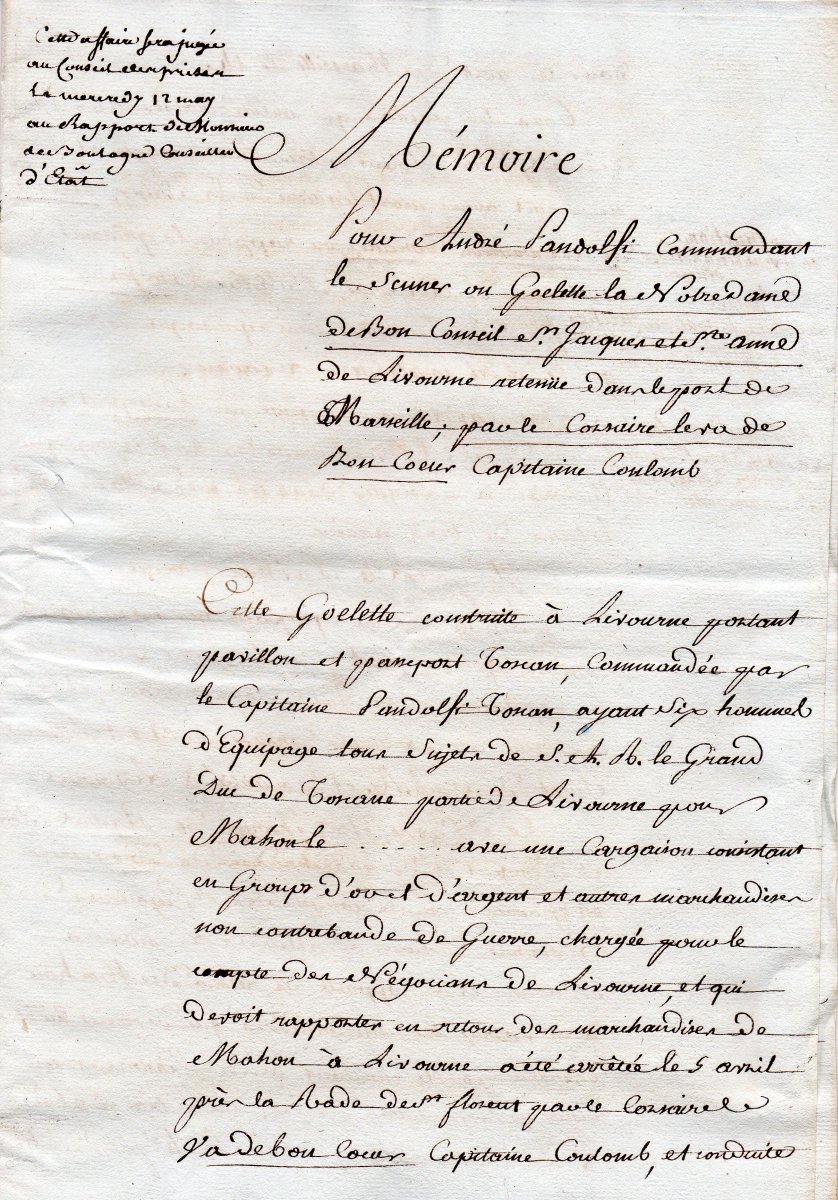 Cette affaire sera jugée
au Conseil des prises
Le mercredy 12 may
au Rapport de Monsieur
de Boulogne Conseiller
d'Etat
Mémoire
Pour André Pandolfi Commandant
le Scuner ou Goelette la Notre Dame
de Bon Conseil St. Jacques et Ste. anne
de Livourne retenue dans le port de
Marseille, par le Corsaire le va de
Bon Coeur Capitaine Coulomb
Cette Goelette construite à Livourne portant
pavillon et passeport Toscan, Commandée par
le Capitaine Pandolfi Toscan, ayant six hommes
d'Equipage tous sujets de S. A. R. le Grand
Duc de Toscane partie de Livourne pour
Mahon le ...... avec une Cargaison consistant
en Groups d'or et d'argent et autres marchandises
non contrebande de Guerre, chargée pour le
compte des Négocians de Livourne, et qui
devoit rapporter en retour des marchandises de
Mahon à Livourne a été arrêtée le 5 avril
près la Rade de St florent par le Corsaire le
Va de bon Coeur Capitaine Coulomb, et conduite